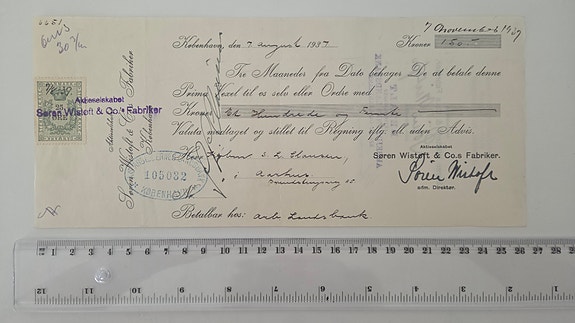 7 November 1937
København, den 7 august 1937
Kroner 150
Tre Maaneder fra Dato behager De at betale denne
Prima Vexel til os selv eller Ordre med
Kroner Et Hundrede og
Valuta modtaget og stillet til Regning iflg. ell. uden Advis.
Aktieselskabet
Søren Wistoft & Co.s Fabriker.
Søren Wistoft
adm. Direktør.
Herr Købm. S. L. Hansen,
Aarhus
No.
Betalbar hos: Aarh Landsbank
Aktieselskabet
Søren Wistoft & Co.s Fabriker
25
ØRE
Aktieselskabet
Søren Wistoft & Co.s Fabriker
København
105032
KØBENHAVN
1 2 3 4 5 6 7 8 9 10 11 12 13 14 15 16 17 18 19 20 21 22 23 24 25 26 27 28
12 11 10 9 8 7 6 5 4 3 2 1